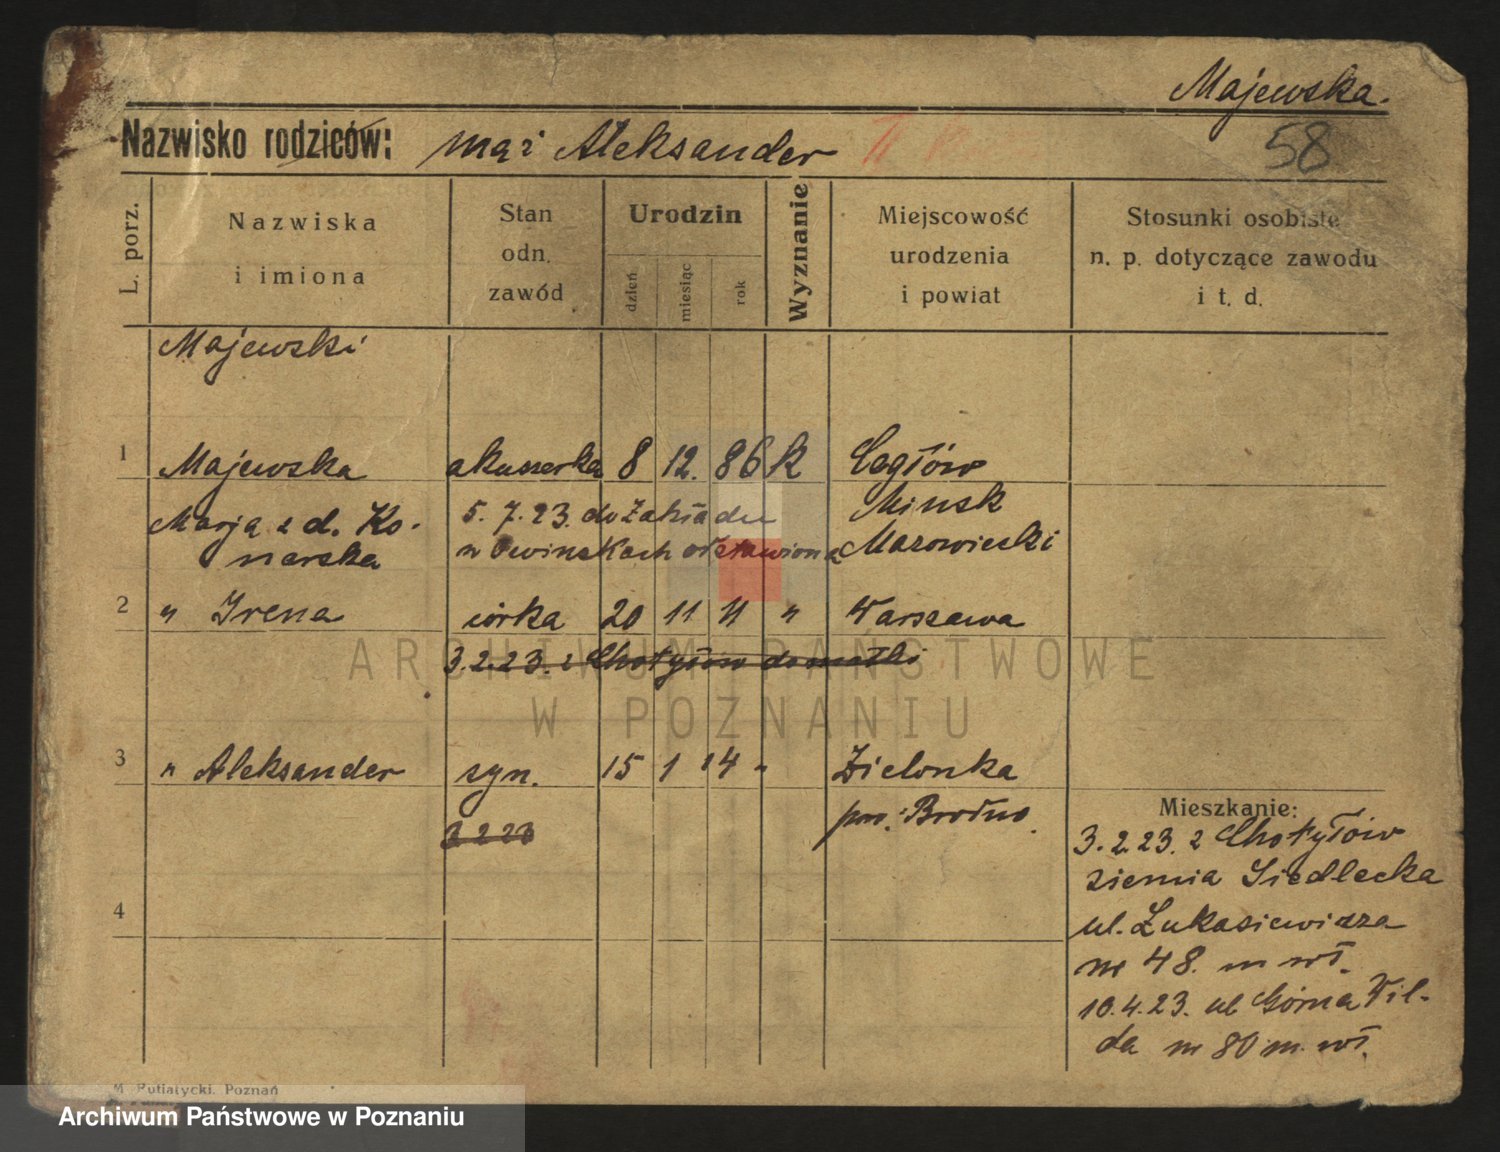 Majewska.
58
Nazwisko rodziców: mąż Aleksander
L. porz.
Nazwiska
i imiona
Stan
odn.
zawód
Urodzin
dzień
miesiąc
rok
Wyznanie
Miejscowość
urodzenia
i powiat
Stosunki osobiste
n. p. dotyczące zawodu
i t. d.
Majewski
1 Majewska akuszerka 8 12. 86 k Cegłów
Marja z d. Ko-
narska
5. 7. 23. do Zakładu
w Owinskach odstawiona
Minsk
Mazowiecki
2 " Irena córka 20 11 11 " Warszawa
3.2.23. z Chotyłów do matki
ARCHIWUM PAŃSTWOWE
W POZNANIU
3 " Aleksander syn. 15 1 14 " Zielonka
3 2 23
pow. Brodno.
4
Mieszkanie:
3.2.23. z Chotyłów
ziemia Siedlecka
ul. Łukasiewicza
nr 48. m wł.
10.4.23. ul Górna Wil-
da nr 80 m. wł.
M. Putiatycki. Poznań
Archiwum Państwowe w Poznaniu